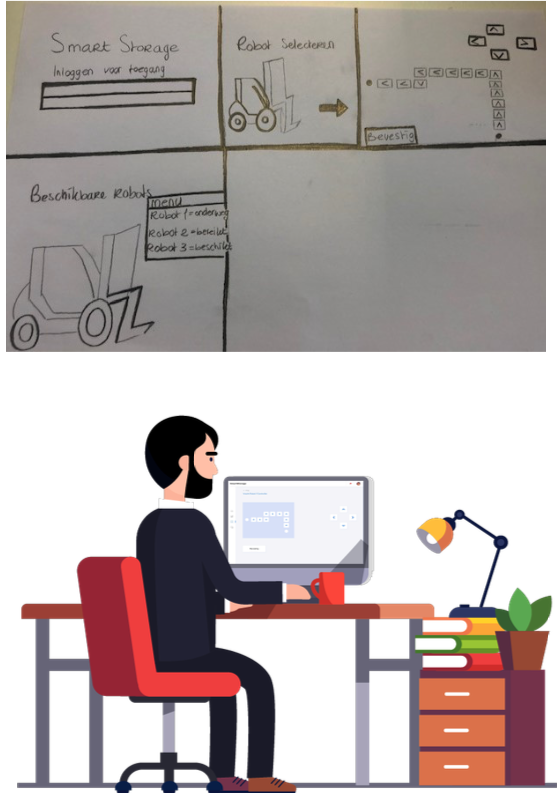 Smart Storage
Inloggen voor toegang
Robot Selecteren
Bevestig
Beschikbare Robots
menu
Robot 1 =
Robot 2 =
Robot 3 = beschikb